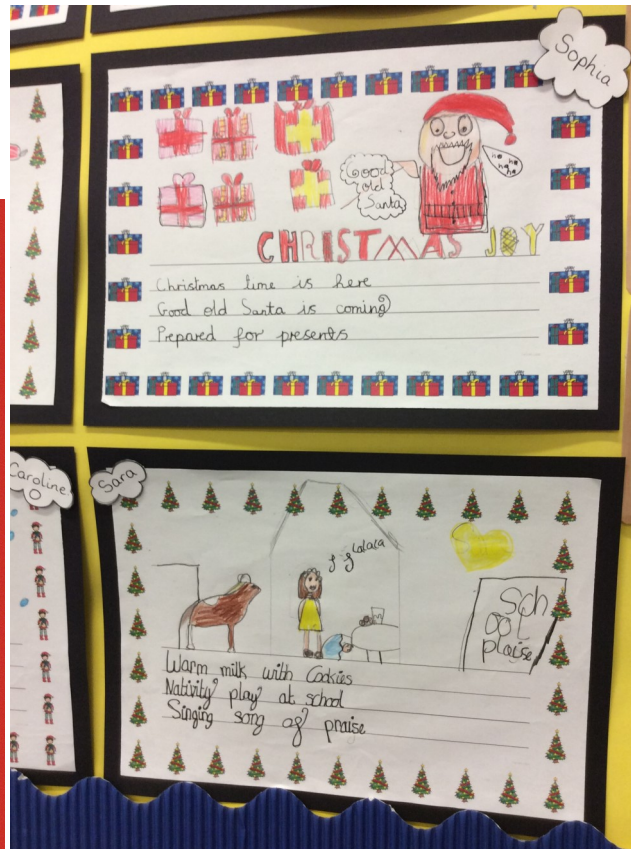 Sophia
ho ho
ho
ho
Good
old
Santa
CHRISTMAS JOY
Christmas time is here
Good old Santa is coming
Prepared for presents
Caroline
Sara
Lalala
Sch
ool
plaise
Warm milk with Cookies
Nativity play at school
Singing song of praise